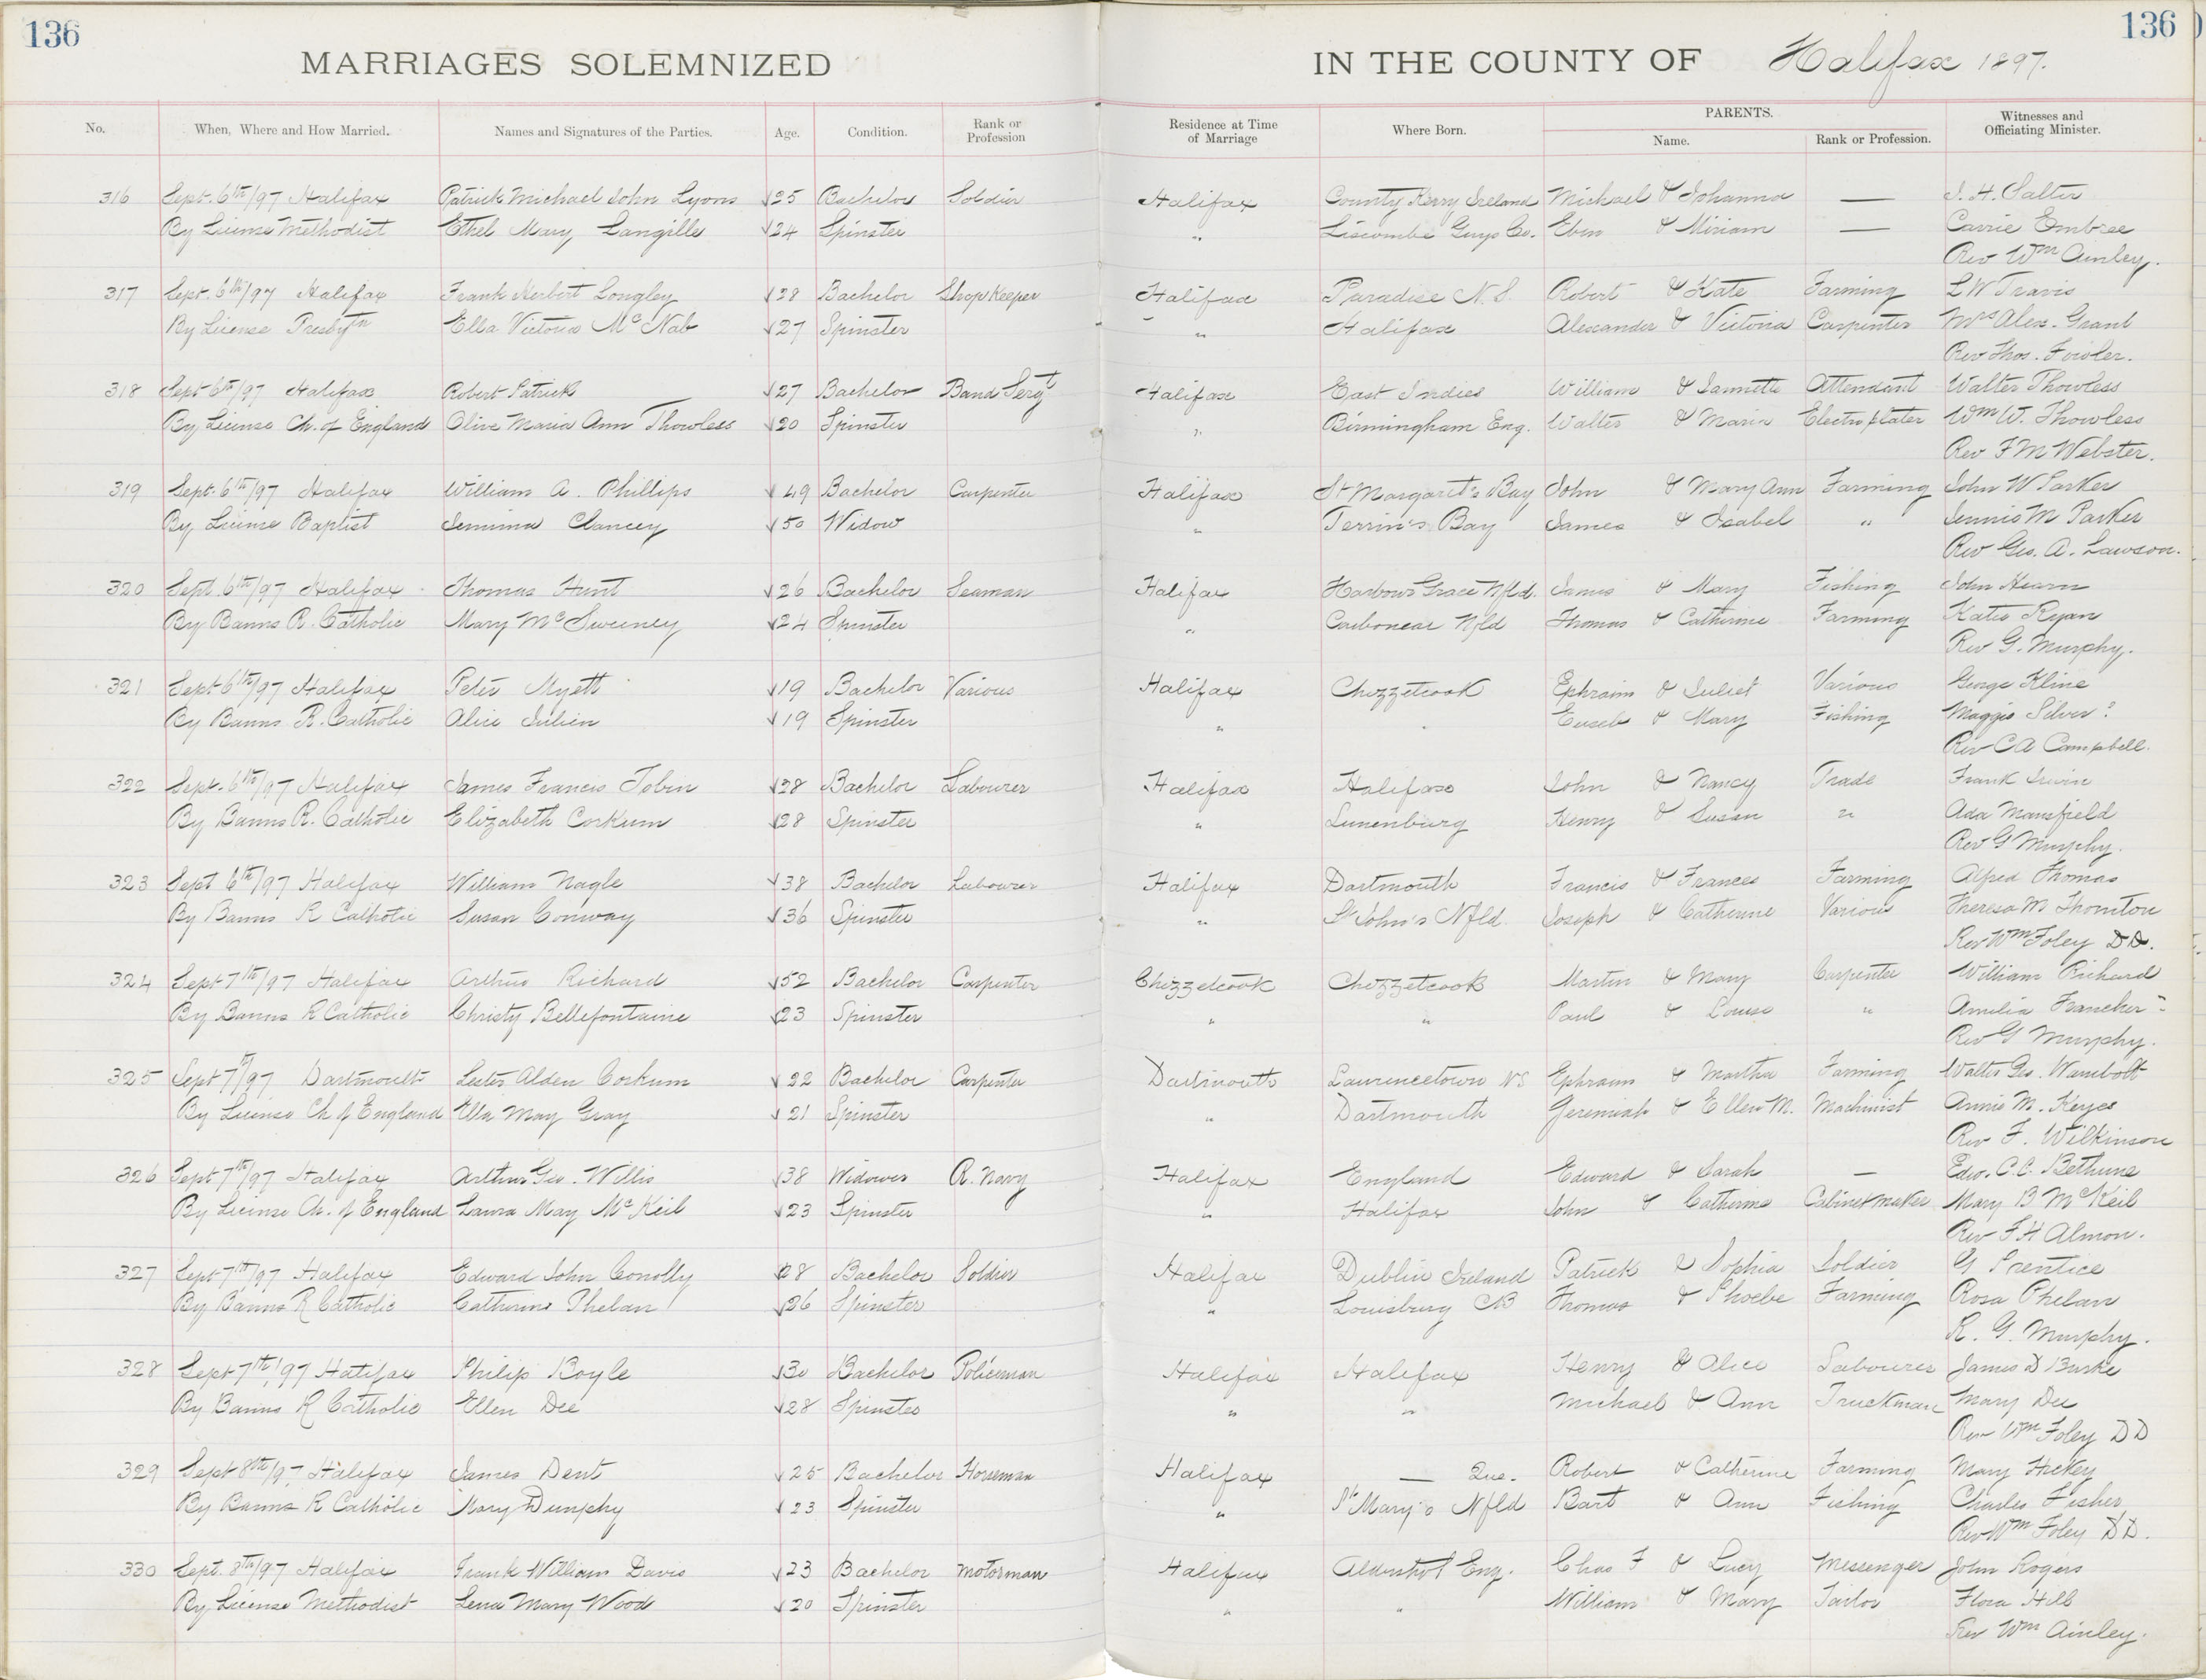 136
136
MARRIAGES SOLEMNIZED IN THE COUNTY OF Halifax 1897.
No. When, Where and How Married. Names and Signatures of the Parties. Age. Condition. Rank or Profession Residence at Time of Marriage Where Born. PARENTS. Name. Rank or Profession. Witnesses and Officiating Minister.
316 Sept. 6th/97 Halifax Patrick Michael John Lyons √25 Bachelor Soldier Halifax County Kerry Ireland Michael & Johanna — J. H. Salter
By License Methodist Ethel Mary Langille √24 Spinster " Liscombe Guys Co. Eben & Miriam — Carrie Embree
Rev Wm Ainley.
317 Sept. 6th/97 Halifax Frank Herbert Longley √28 Bachelor Shop Keeper Halifax Paradise N.S. Robert & Kate Farming L W Travis
By License Presbytn Ella Victoria McNab √27 Spinster " Halifax Alexander & Victoria Carpenter Mrs Alex. Grant
Rev Thos. Fowler.
318 Sept 6th/97 Halifax Robert Patrick √27 Bachelor Band Sergt Halifax East Indies William & Jannette Attendant Walter Thowless
By License Ch. of England Olive Maria Ann Thowless √20 Spinster " Birmingham Eng. Walter & Maria Electro plater Wm W. Thowless
Rev F M Webster.
319 Sept. 6th/97 Halifax William A. Phillips √49 Bachelor Carpenter Halifax St Margaret's Bay John & Mary Ann Farming John W Parker
By License Baptist Jemima Clancey √50 Widow " Terrin's Bay James & Isabel " Jennie M Parker
Rev Geo. A. Lawson.
320 Sept. 6th/97 Halifax Thomas Hunt √26 Bachelor Seaman Halifax Harbour Grace Nfld. James & Mary Fishing John Hearn
By Banns R. Catholic Mary McSweeney √24 Spinster " Carbonear Nfld Thomas & Catherine Farming Katie Ryan
Rev G. Murphy.
321 Sept 6th/97 Halifax Peter Myett √19 Bachelor Various Halifax Chezzetcook Ephraim & Juliet Various George Kline
By Banns R. Catholic Alice Julien √19 Spinster " " Euseb & Mary Fishing Maggie Silver?
Rev C A Campbell.
322 Sept. 6th/97 Halifax James Francis Tobin √28 Bachelor Labourer Halifax Halifax John & Nancy Trade Frank Irwin
By Banns R. Catholic Elizabeth Corkum √28 Spinster " Lunenburg Henry & Susan " Ada Mansfield
Rev G Murphy.
323 Sept 6th/97 Halifax William Nagle √38 Bachelor Labourer Halifax Dartmouth Francis & Frances Farming Alfred Thomas
By Banns R Catholic Susan Conway √36 Spinster " St John's Nfld. Joseph & Catherine Various Theresa M Thornton
Rev Wm Foley DD.
324 Sept 7th/97 Halifax Arthur Richard √52 Bachelor Carpenter Chezzetcook Chezzetcook Martin & Mary Carpenter William Richard
By Banns R Catholic Christy Bellefontaine √23 Spinster " " Paul & Louise " Amelia Francher?
Rev G Murphy.
325 Sept 7th/97 Dartmouth Lester Alden Corkum √22 Bachelor Carpenter Dartmouth Lawrencetown NS Ephraim & Martha Farming Walter Geo. Wambolt
By License Ch of England Ella May Gray √21 Spinster " Dartmouth Jeremiah & Ellen M. Machinist Annie M. Keyes
Rev F. Wilkinson
326 Sept 7th/97 Halifax Arthur Geo. Willis √38 Widower R. Navy Halifax England Edward & Sarah — Edw. C. C. Bethune
By License Ch. of England Laura May McKeil √23 Spinster " Halifax John & Catherine Cabinet maker Mary B McKeil
Rev F H Almon.
327 Sept 7th/97 Halifax Edward John Conolly √28 Bachelor Soldier Halifax Dublin Ireland Patrick & Sophia Soldier G Prentice
By Banns R Catholic Catherine Phelan √26 Spinster " Louisburg CB Thomas & Phoebe Farming Rosa Phelan
R. G. Murphy.
328 Sept 7th/97 Halifax Philip Boyle √30 Bachelor Policeman Halifax Halifax Henry & Alice Labourer James D Burke
By Banns R Catholic Ellen Dee √28 Spinster " " Michael & Ann Truckman Mary Dee
Rev Wm Foley DD
329 Sept 8th/97 Halifax James Dent √25 Bachelor Horseman Halifax — Que. Robert & Catherine Farming Mary Hickey
By Banns R Catholic Mary Dunphy √23 Spinster " St Mary's Nfld Bart & Ann Fishing Charles Fisher
Rev Wm Foley DD.
330 Sept. 8th/97 Halifax Frank William Davis √23 Bachelor Motorman Halifax Aldershot Eng. Chas F & Lucy Messenger John Rogers
By License Methodist Lena Mary Wood √20 Spinster " " William & Mary Tailor Flora Hill
Rev Wm Ainley.